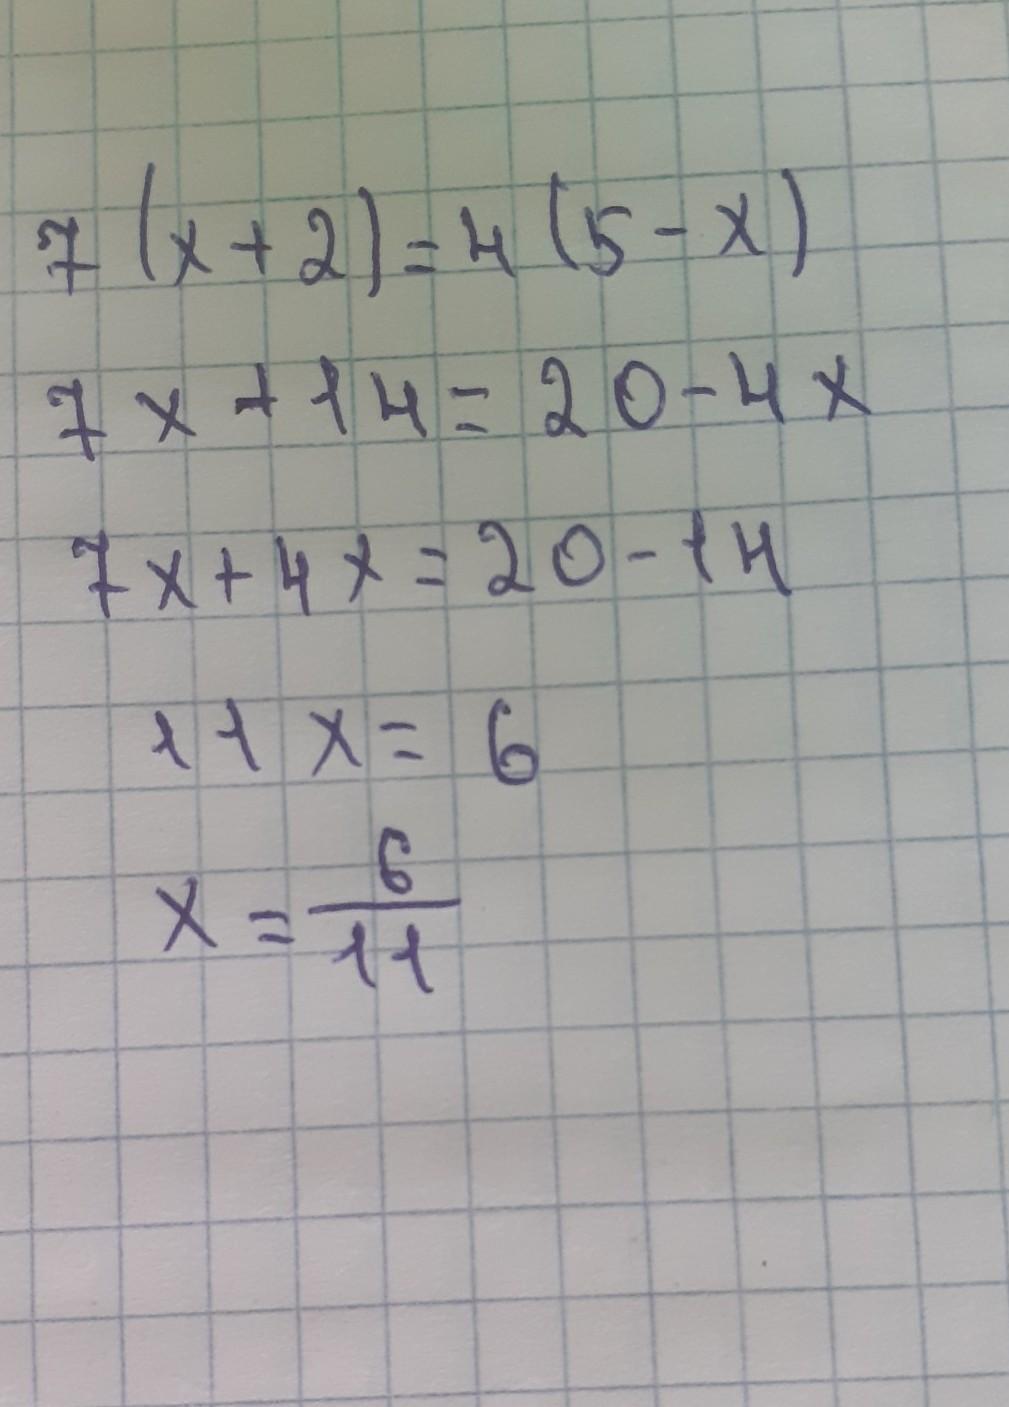 7(x+2)=4(5-x)
7x+14=20-4x
7x+4x=20-14
11x=6
x=6/11